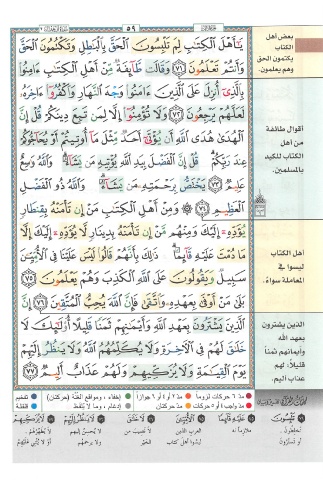 ٥٩
يَٰٓأَهْلَ ٱلْكِتَٰبِ لِمَ تَلْبِسُونَ ٱلْحَقَّ بِٱلْبَٰطِلِ وَتَكْتُمُونَ ٱلْحَقَّ
وَأَنتُمْ تَعْلَمُونَ ﴿٧١﴾ وَقَالَت طَّآئِفَةٌ مِّنْ أَهْلِ ٱلْكِتَٰبِ ءَامِنُوا۟
بِٱلَّذِىٓ أُنزِلَ عَلَى ٱلَّذِينَ ءَامَنُوا۟ وَجْهَ ٱلنَّهَارِ وَٱكْفُرُوٓا۟ ءَاخِرَهُۥ
لَعَلَّهُمْ يَرْجِعُونَ ﴿٧٢﴾ وَلَا تُؤْمِنُوٓا۟ إِلَّا لِمَن تَبِعَ دِينَكُمْ قُلْ إِنَّ
ٱلْهُدَىٰ هُدَى ٱللَّهِ أَن يُؤْتَىٰٓ أَحَدٌ مِّثْلَ مَآ أُوتِيتُمْ أَوْ يُحَآجُّوكُمْ
عِندَ رَبِّكُمْ قُلْ إِنَّ ٱلْفَضْلَ بِيَدِ ٱللَّهِ يُؤْتِيهِ مَن يَشَآءُ وَٱللَّهُ وَٰسِعٌ
عَلِيمٌ ﴿٧٣﴾ يَخْتَصُّ بِرَحْمَتِهِۦ مَن يَشَآءُ وَٱللَّهُ ذُو ٱلْفَضْلِ
ٱلْعَظِيمِ ﴿٧٤﴾ وَمِنْ أَهْلِ ٱلْكِتَٰبِ مَنْ إِن تَأْمَنْهُ بِقِنطَارٍ
يُؤَدِّهِۦٓ إِلَيْكَ وَمِنْهُم مَّنْ إِن تَأْمَنْهُ بِدِينَارٍ لَّا يُؤَدِّهِۦٓ إِلَيْكَ إِلَّا
مَا دُمْتَ عَلَيْهِ قَآئِمًا ذَٰلِكَ بِأَنَّهُمْ قَالُوا۟ لَيْسَ عَلَيْنَا فِى ٱلْأُمِّيِّـۧنَ
سَبِيلٌ وَيَقُولُونَ عَلَى ٱللَّهِ ٱلْكَذِبَ وَهُمْ يَعْلَمُونَ ﴿٧٥﴾
بَلَىٰ مَنْ أَوْفَىٰ بِعَهْدِهِۦ وَٱتَّقَىٰ فَإِنَّ ٱللَّهَ يُحِبُّ ٱلْمُتَّقِينَ ﴿٧٦﴾ إِنَّ
ٱلَّذِينَ يَشْتَرُونَ بِعَهْدِ ٱللَّهِ وَأَيْمَٰنِهِمْ ثَمَنًا قَلِيلًا أُو۟لَٰٓئِكَ لَا
خَلَٰقَ لَهُمْ فِى ٱلْءَاخِرَةِ وَلَا يُكَلِّمُهُمُ ٱللَّهُ وَلَا يَنظُرُ إِلَيْهِمْ
يَوْمَ ٱلْقِيَٰمَةِ وَلَا يُزَكِّيهِمْ وَلَهُمْ عَذَابٌ أَلِيمٌ ﴿٧٧﴾
بعض أهل
الكتاب
يكتمون الحق
وهم يعلمون.
أقوال طائفة
من أهل
الكتاب للكيد
بالمسلمين.
أهل الكتاب
ليسوا في
المعاملة سواءً.
الذين يشترون
بعهد الله
وأيمانهم ثمناً
قليلاً: لهم
عذاب أليم.
مدّ ٦ حركات لزوماً
مدّ ٢ أو ٤ أو ٦ جوازاً
إخفاء، ومواقع الغنّة (حركتان)
تفخيم
مدّ حركتان
إدغام، وما لا يُلفظ
قلقلة
تَلْبِسُونَ
عَلَيْهِ قَآئِمًا
لَا خَلَٰقَ
لَا يُزَكِّيهِمْ
ملازماً له
لا نصيب من
الخير
لا يطهّرهم